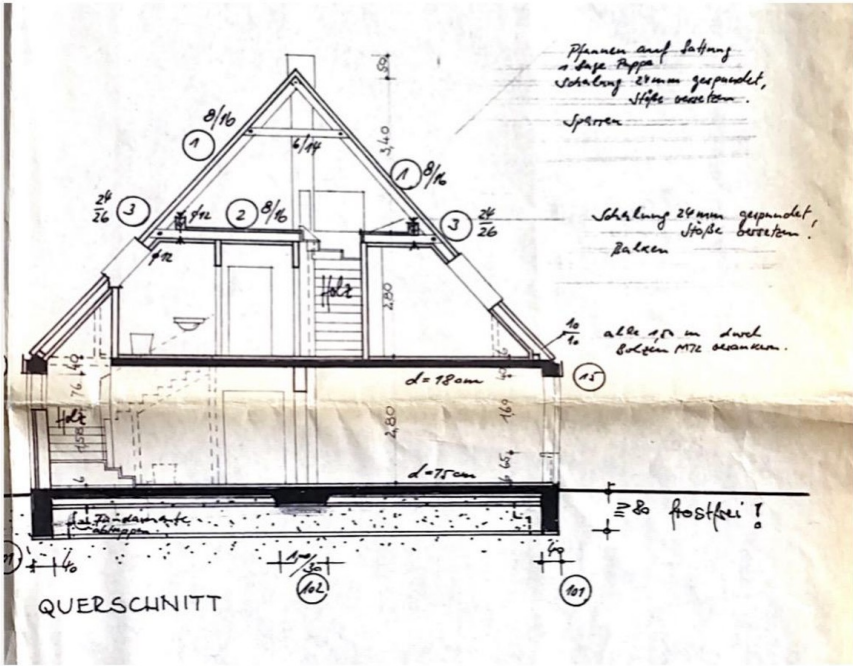 Pfannen auf Lattung
1 Lage Pappe
Schalung 24mm gespundet,
Stöße versetzen.
Sparren
50
3,40
8/16
1
6/14
1
8/16
24/26
3
ø12
2
8/16
3
24/26
Schalung 24mm gespundet,
Stöße versetzen.
Balken
ø12
Holz
2,80
10/10
alle 1,50 m durch
Bolzen M12 verankern.
40
76
40
d=18cm
15
Holz
1,58
2,80
1,60
65
6
6
d=15cm
≥80 frostfrei!
Fundamente
40
40
102
101
QUERSCHNITT